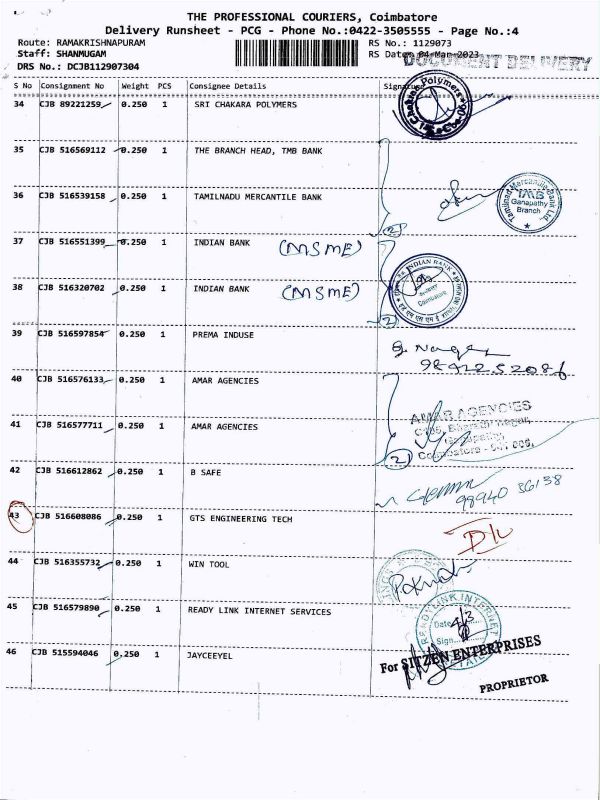 THE PROFESSIONAL COURIERS, Coimbatore
Delivery Runsheet - PCG - Phone No.:0422-3505555 - Page No.:4
Route: RAMAKRISHNAPURAM
RS No.: 1129073
Staff: SHANMUGAM
RS Date: 04-Mar-2023
DOCUMENT DELIVERY
DRS No.: DCJB112907304
S No Consignment No Weight PCS Consignee Details Signature
34 CJB 89221259 0.250 1 SRI CHAKARA POLYMERS
35 CJB 516569112 0.250 1 THE BRANCH HEAD, TMB BANK
36 CJB 516539158 0.250 1 TAMILNADU MERCANTILE BANK
Tamilnad Mercantile Bank Ltd.
TMB
Ganapathy
Branch
2
37 CJB 516551399 0.250 1 INDIAN BANK (MSME)
38 CJB 516320702 0.250 1 INDIAN BANK (MSME)
INDIAN BANK
Coimbatore
2
39 CJB 516597854 0.250 1 PREMA INDUSE
40 CJB 516576133 0.250 1 AMAR AGENCIES
41 CJB 516577711 0.250 1 AMAR AGENCIES
AMAR AGENCIES
2
42 CJB 516612862 0.250 1 B SAFE
99940 36138
43 CJB 516608086 0.250 1 GTS ENGINEERING TECH
D/L
44 CJB 516355732 0.250 1 WIN TOOL
45 CJB 516579890 0.250 1 READY LINK INTERNET SERVICES
READY LINK INTERNET
Date 4/3
Sign
46 CJB 515594046 0.250 1 JAYCEEYEL
For SITZEN ENTERPRISES
PROPRIETOR